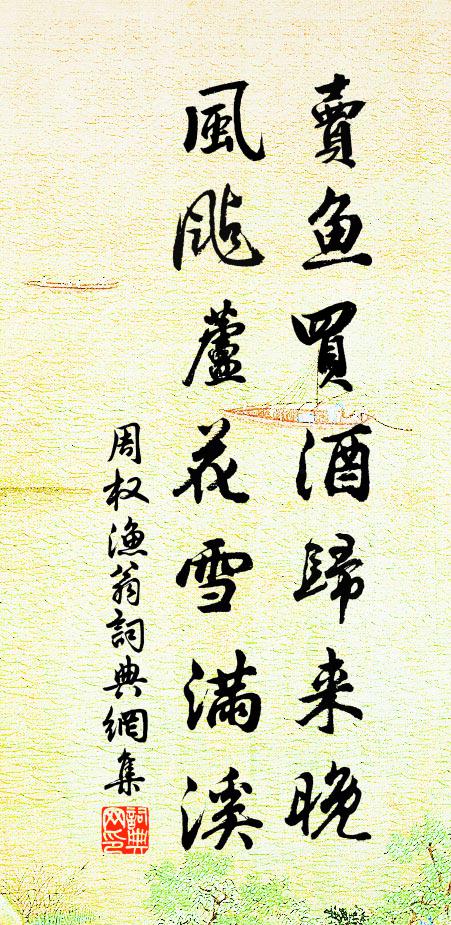 賣鱼買酒歸来晚
風颭蘆花雪满溪
周权渔翁詞典網集
詞典网印